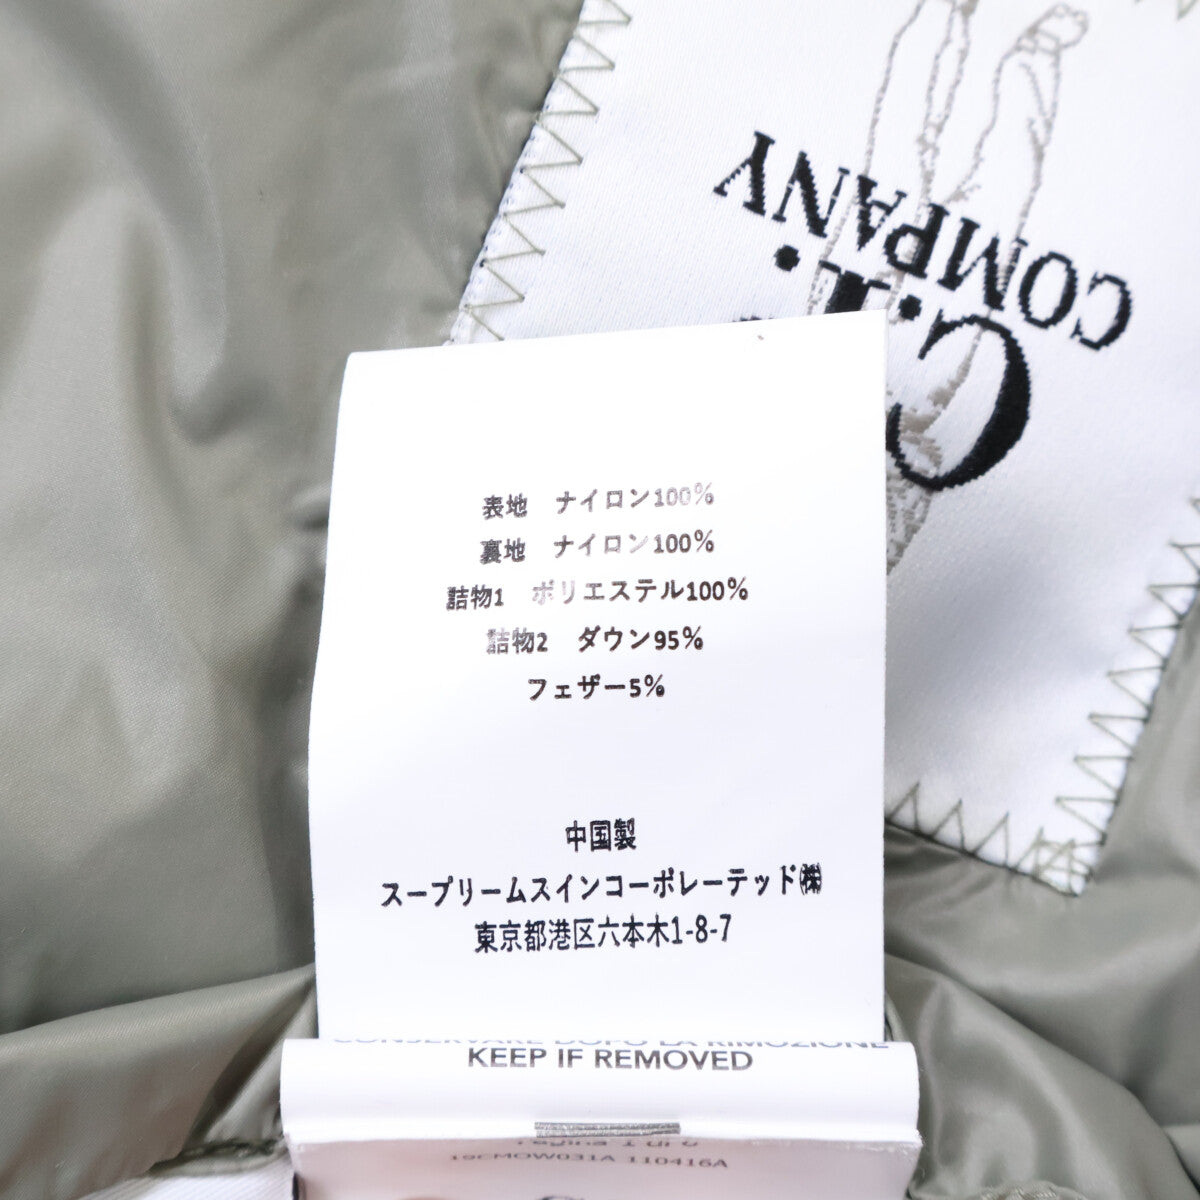 C.P.
COMPANY
表地 ナイロン100%
裏地 ナイロン100%
詰物1 ポリエステル100%
詰物2 ダウン95%
フェザー5%
中国製
スープリームスインコーポレーテッド㈱
東京都港区六本木1-8-7
CONSERVARE DOPO LA RIMOZIONE
KEEP IF REMOVED
Pagina 1 di 6
19CMOW031A 110416A